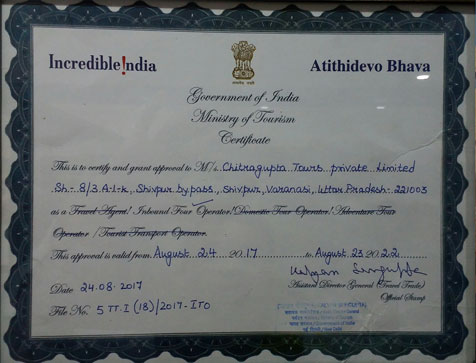 Incredible!ndia
Atithidevo Bhava
Government of India
Ministry of Tourism
Certificate
This is to certify and grant approval to M/s Chitragupta Tours private Limited
Sh-8/3 A-1-k, Shivpur bypass, Shivpur, Varanasi, Uttar Pradesh- 221003
as a Travel Agent/ Inbound Tour Operator/Domestic Tour Operator/Adventure Tour
Operator /Tourist Transport Operator.
This approval is valid from August 24 2017 to August 23 2022
Assistant Director General (Travel Trade)
Date 24.08.2017
Official Stamp
File No. 5 TT.I (18)/2017-ITO